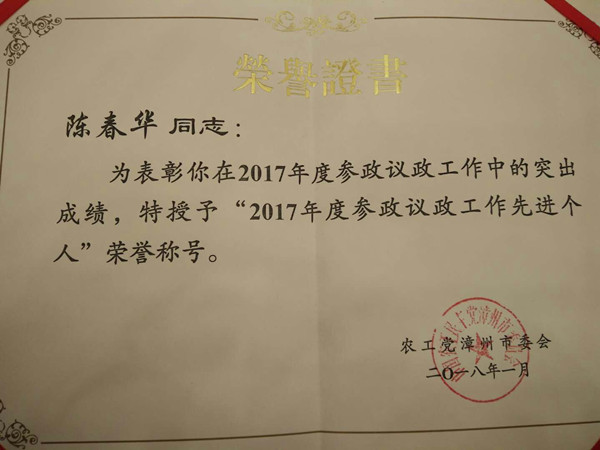 榮譽證書
陈春华 同志：
为表彰你在2017年度参政议政工作中的突出
成绩，特授予“2017年度参政议政工作先进个
人”荣誉称号。
农工党漳州市委会
二〇一八年一月